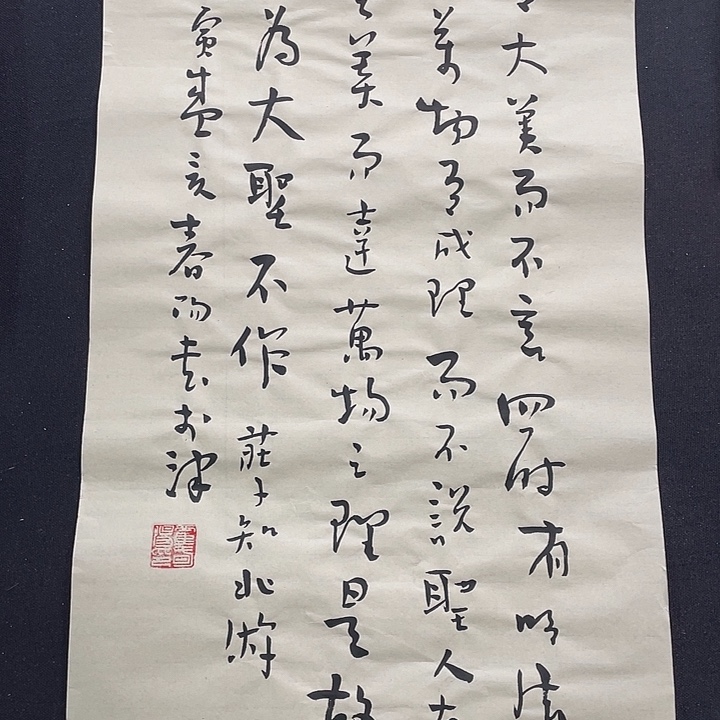 大美而不言四时有明法
萬物有成理而不説聖人
美而達萬物之理是故
為大聖不作莊子知北游
寅盛言春雨書於津